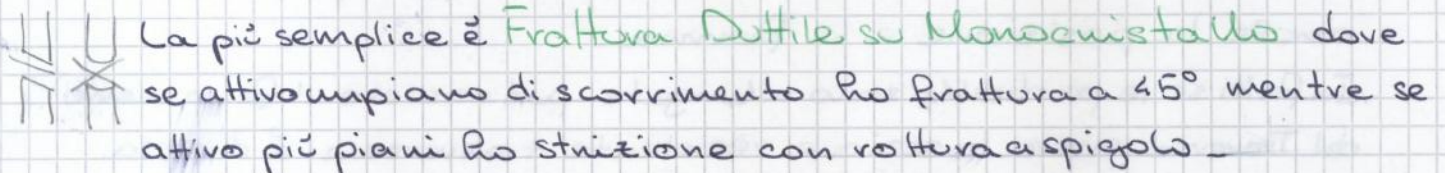 La più semplice è Frattura Duttile su Monocristallo dove
se attivo un piano di scorrimento ho frattura a 45° mentre se
attivo più piani ho strizione con rottura a spigolo -